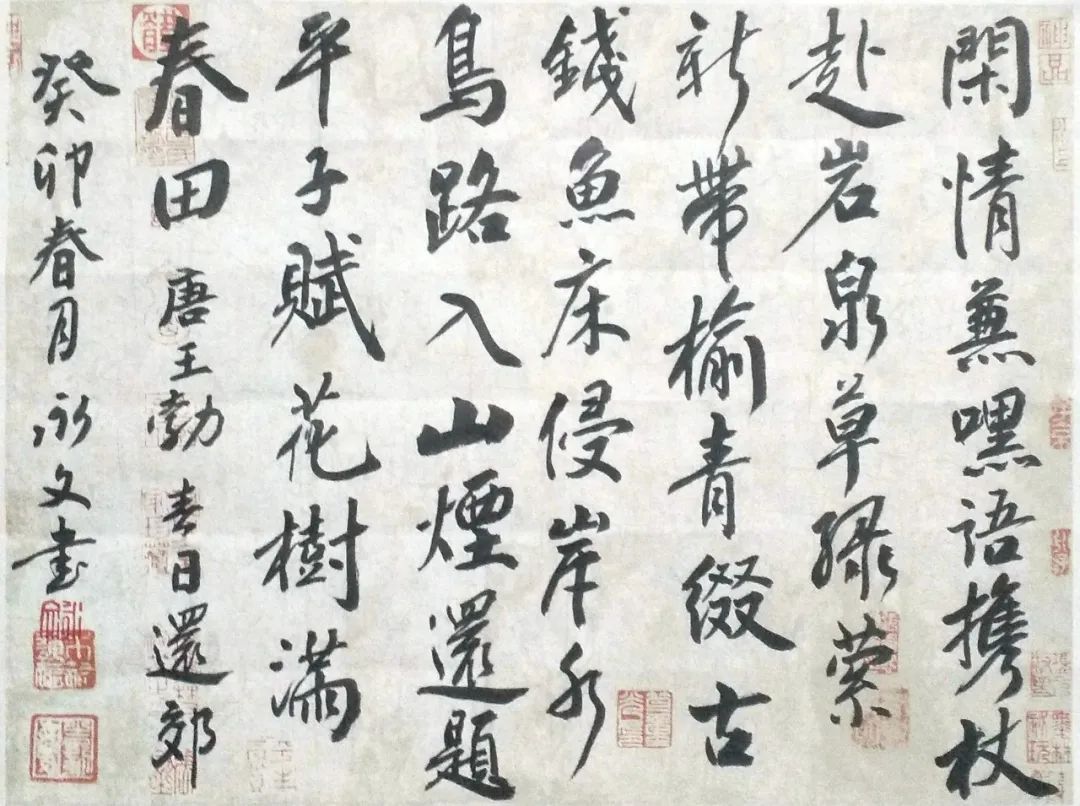 閑情兼嘿語携杖
赴岩泉草緑萦
新帶榆青綴古
錢魚床侵岸水
鳥路入山煙還題
平子賦花樹滿
春田 唐王勃春日還郊
癸卯春月永文書